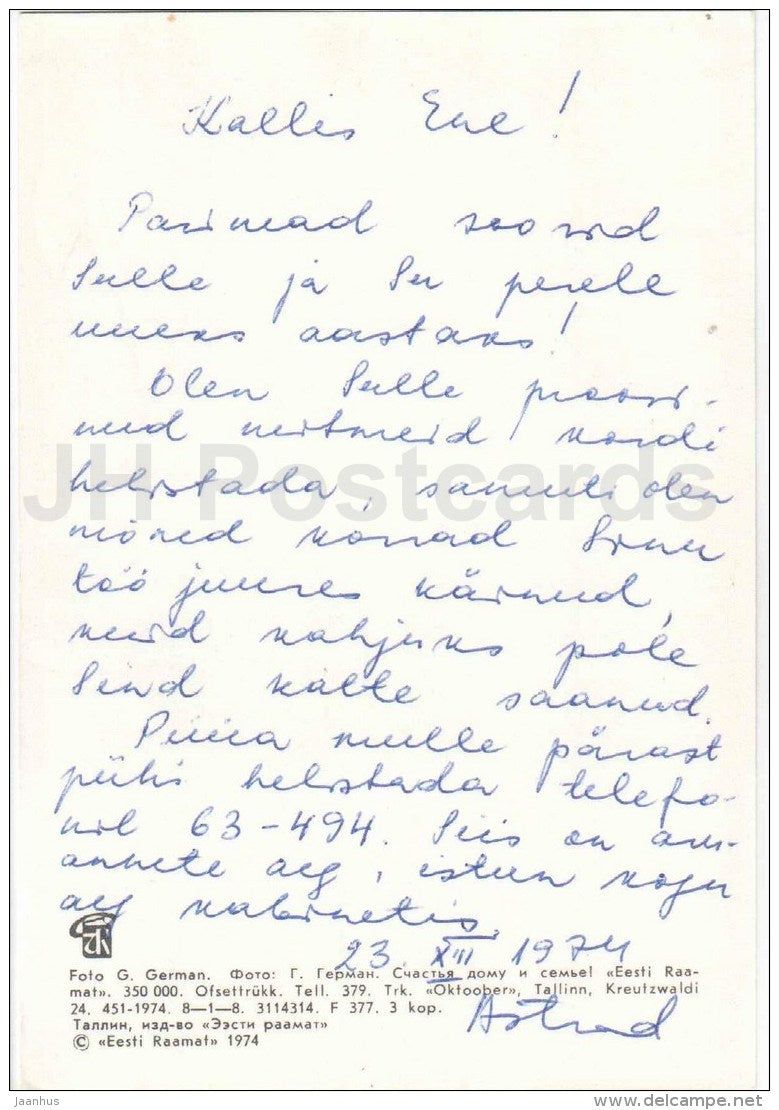 Kallis Ene!
Parimad soovid
Sulle ja Su perele
uueks aastaks!
Olen Sulle proovi-
nud mitmeid kordi
helistada, samuti olen
mõned korrad Sinu
töö juures käinud,
kuid kahjuks pole
Sind kätte saanud.
Püüa mulle pärast
pühi helistada telefo-
nil 63-494. Siis on aru-
annete aeg, istun kogu
aeg kabinetis.
23. XII 1974
Foto G. German. Фото: Г. Герман. Счастья дому и семье! «Eesti Raa-
mat». 350 000. Ofsettrükk. Tell. 379. Trk. «Oktoober», Tallinn, Kreutzwaldi
24. 451-1974. 8—1—8. 3114314. F 377. 3 kop.
Таллин, изд-во «Ээсти раамат»
© «Eesti Raamat» 1974
Astrid
JH Postcards
Jaanhus
delcampe.net